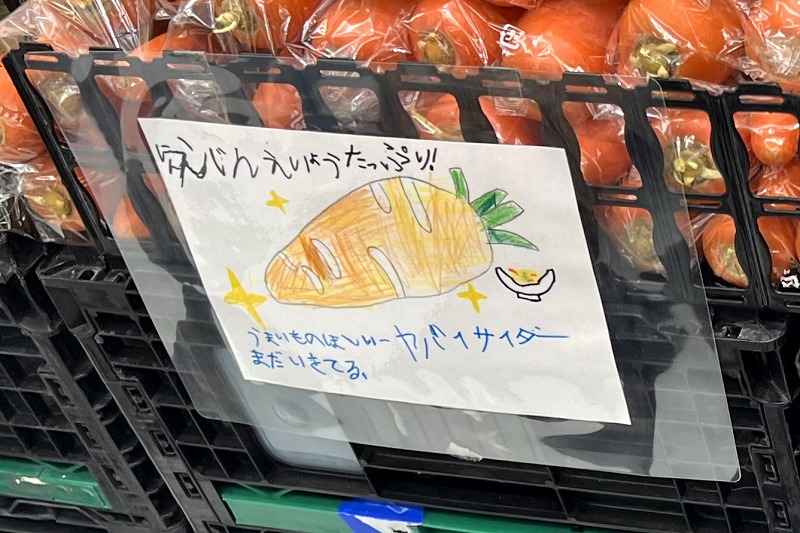 えいようたっぷり!
うまいものほしいーヤバイサイダー
まだいきてる。